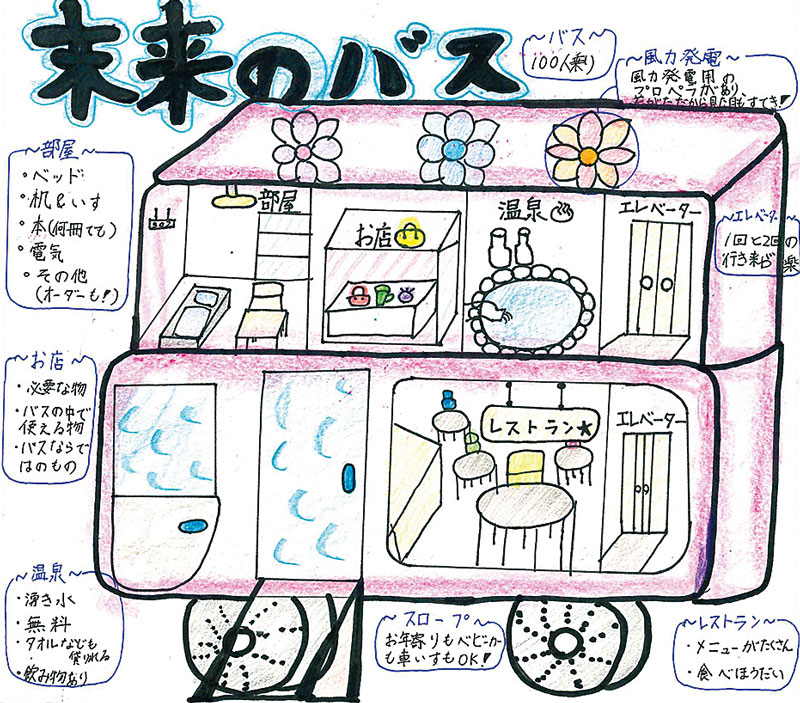 未来のバス
～バス～
100人乗り
～風力発電～
風力発電用の
プロペラがあり、
花がただから見た目もすてき!
～部屋～
・ベッド
・机&いす
・本(何冊でも)
・電気
・その他
(オーダーも!)
部屋
お店
温泉♨
エレベーター
～エレベーター～
1回と2回の
行き来が楽
～お店～
・必要な物
・バスの中で
使える物
・バスならで
はのもの
レストラン★
エレベーター
～温泉～
・湧き水
・無料
・タオルなども
借りれる
・飲み物あり
～スロープ～
お年寄りもベビーカー
も車いすもOK!
～レストラン～
・メニューがたくさん
・食べほうだい